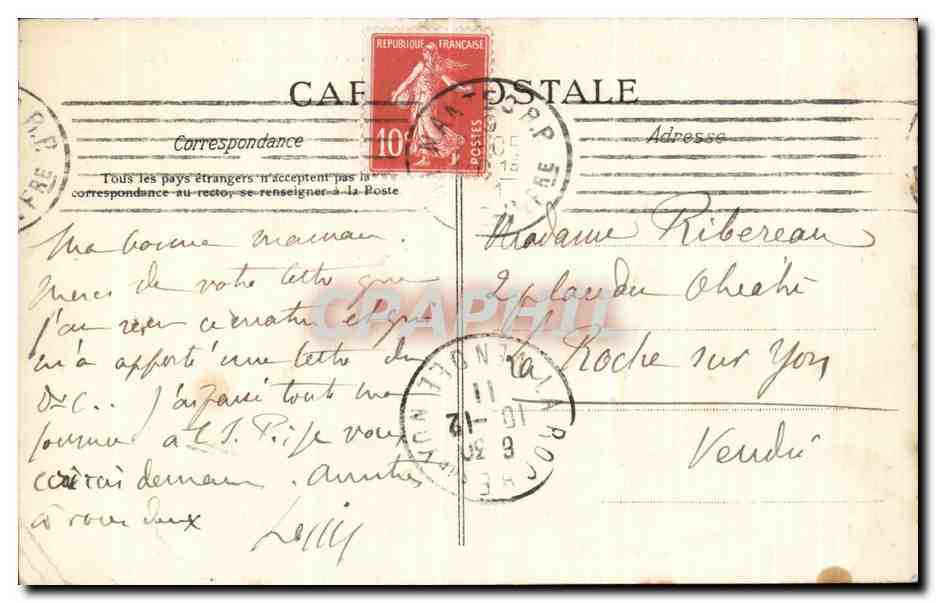 CARTE POSTALE
REPUBLIQUE FRANÇAISE
10
POSTES
Correspondance
Tous les pays étrangers n'acceptent pas la
correspondance au recto, se renseigner à la Poste
Adresse
R.P.
Ma bonne maman.
Merci de votre lettre que
j'ai reçu ce matin et qui
m'a apporté une lettre du
Dr C.. J'ai passé toute ma
journée à
demain. Amitiés
à vous deux
Madame Ribereau
2 place du Théatre
La Roche sur Yon
Vendée
LA ROCHE
11
10-12
6 30
CPAPHIL